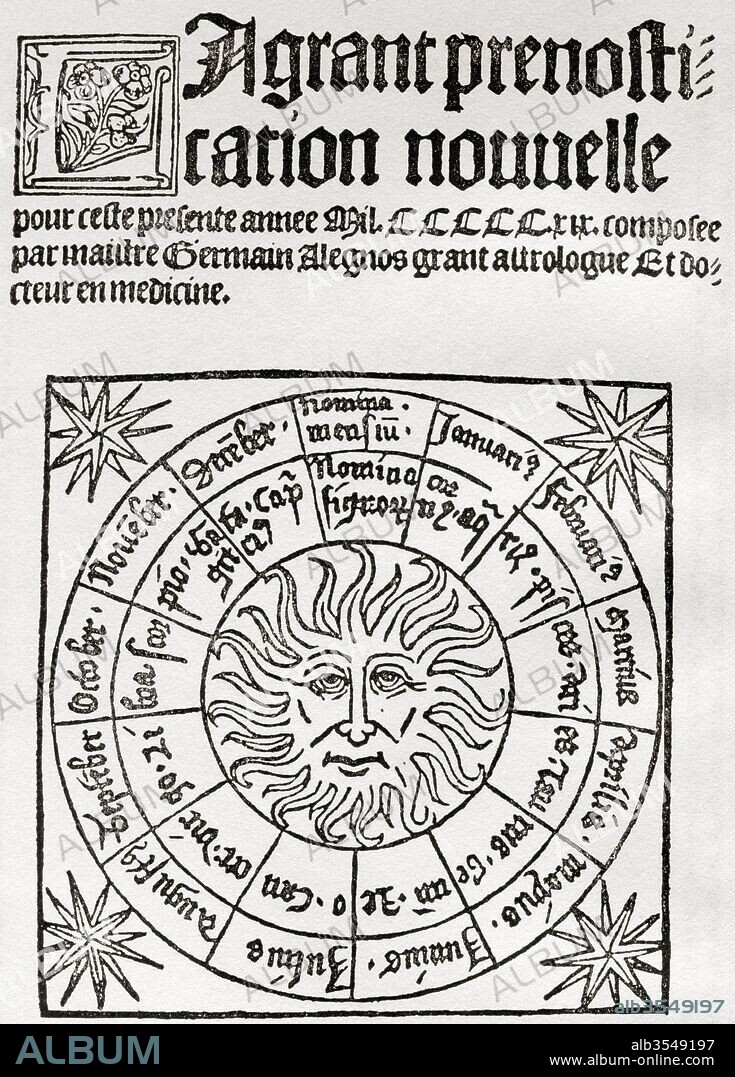 LA grant prenosti⸗
cation nouuelle
pour ceste presente annee Mil. CCCCC.xix. composee
par maistre Germain Alegnos grant astrologue Et do⸗
cteur en medicine.
Nomina mensiū.
Januari⁹
Februari⁹
Martius
Aprilis.
maius.
Junius.
Julius
Augustꝰ
September
October.
Nouēber.
Decēber.
Nomina signorꝝ
aq̄ ri⁹. pis
ces. Ari
es. Tau
rus. Ge
mi. Le
o. Can
cer. vir
go. Li
bra sco
pio. Sa
ALBUM
alb3549197
ALBUM
alb3549197
www.album-online.com